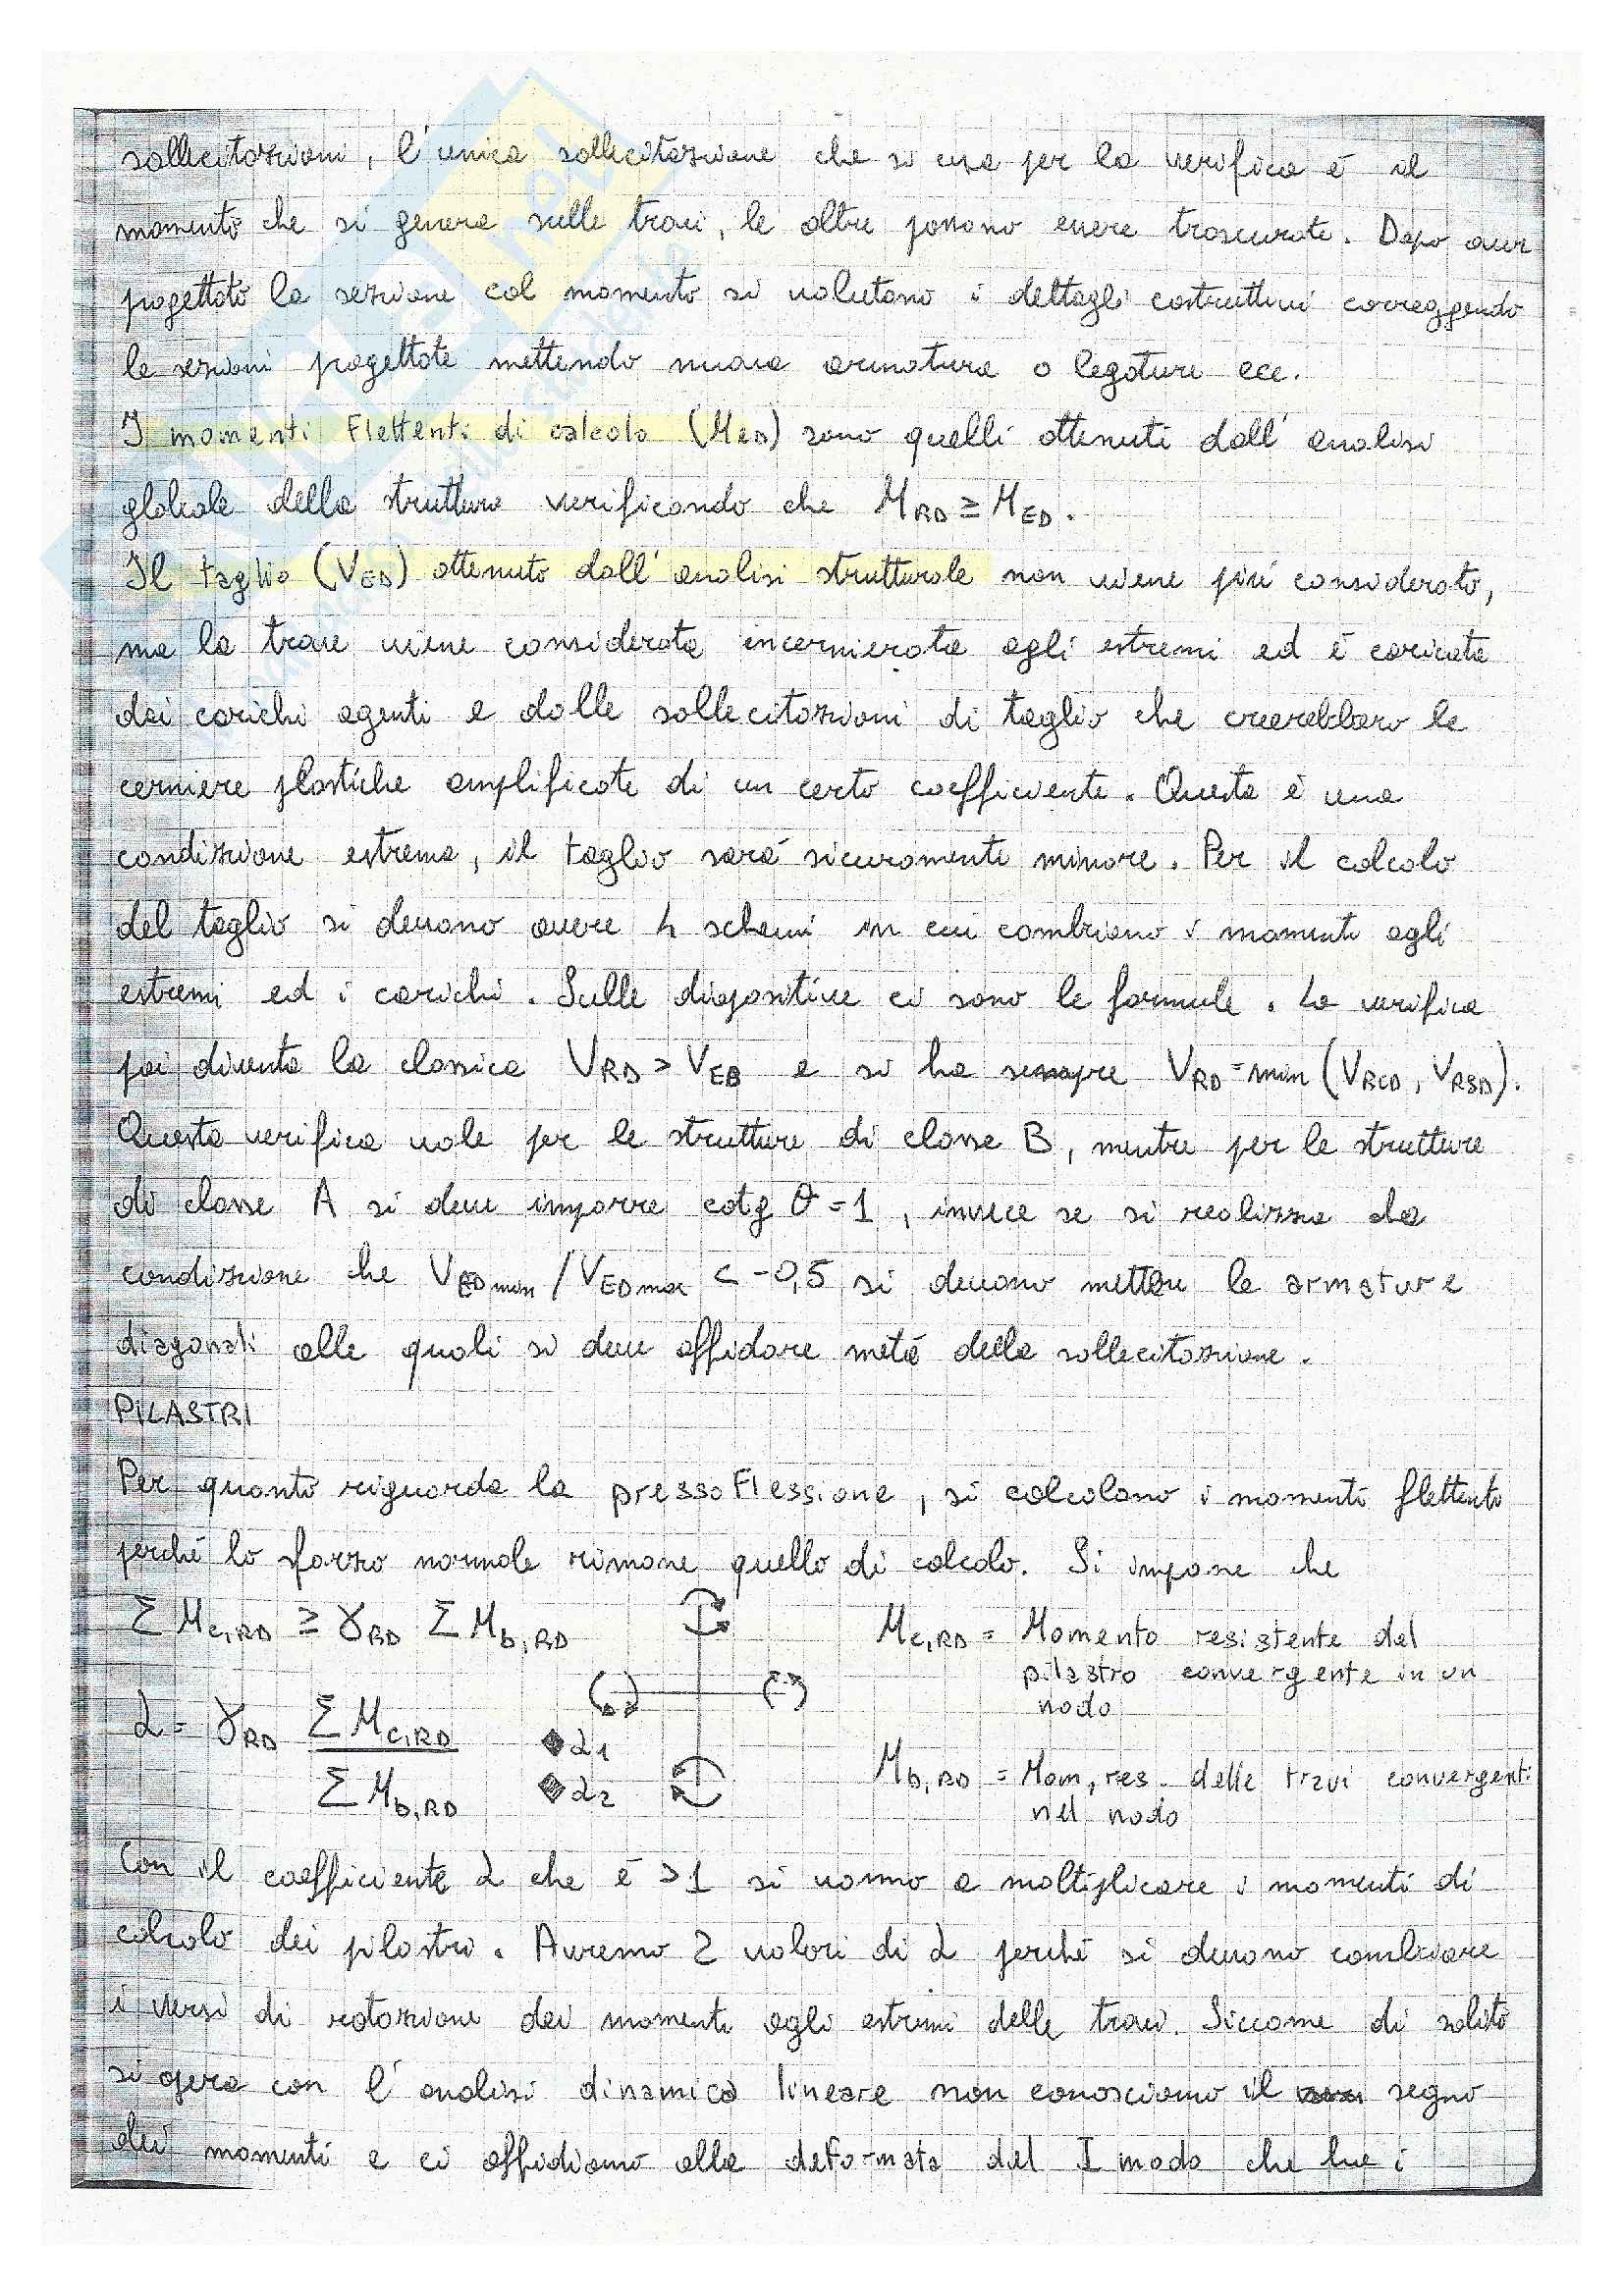 sollecitazioni, l'unica sollecitazione che si usa per la verifica è il
momento che si genera sulle travi, le altre possono essere trascurate. Dopo aver
progettato la sezione col momento si valutano i dettagli costruttivi correggendo
le sezioni progettate mettendo nuova armatura o legature ecc.
I momenti Flettenti di calcolo (MED) sono quelli ottenuti dall'analisi
globale della struttura verificando che MRD ≥ MED.
Il taglio (VED) ottenuto dall'analisi strutturale non viene più considerato,
ma la trave viene considerata incernierata agli estremi ed è caricata
dai carichi agenti e dalle sollecitazioni di taglio che creerebbero le
cerniere plastiche amplificate di un certo coefficiente. Questa è una
condizione estrema, il taglio sarà sicuramente minore. Per il calcolo
del taglio si devono avere 4 schemi in cui cambiano i momenti agli
estremi ed i carichi. Sulle diapositive ci sono le formule. La verifica
poi diventa la classica VRD > VED e si ha sempre VRD = min (VRCD, VRSD).
Questa verifica vale per le strutture di classe B, mentre per le strutture
di classe A si deve imporre cotg θ = 1, invece se si realizza la
condizione che VEDmin / VEDmax < -0,5 si devono mettere le armature
diagonali alle quali si deve affidare metà della sollecitazione.
PILASTRI
Per quanto riguarda la pressoFlessione, si calcolano i momenti flettenti
perché lo sforzo normale rimane quello di calcolo. Si impone che
Σ Mc,RD ≥ γRD Σ Mb,RD
Mc,RD = Momento resistente del
pilastro convergente in un
nodo
α = γRD Σ Mc,RD
Σ Mb,RD
α1
α2
Mb,RD = Mom, res. delle travi convergenti
nel nodo
Con il coefficiente α che è >1 si vanno a moltiplicare i momenti di
calcolo dei pilastri. Avremo 2 valori di α perché si devono cambiare
i versi di rotazione dei momenti agli estremi delle travi. Siccome di solito
si opera con l'analisi dinamica lineare non conosciamo il segno
dei momenti e ci affidiamo alla deformata del I modo che ha i